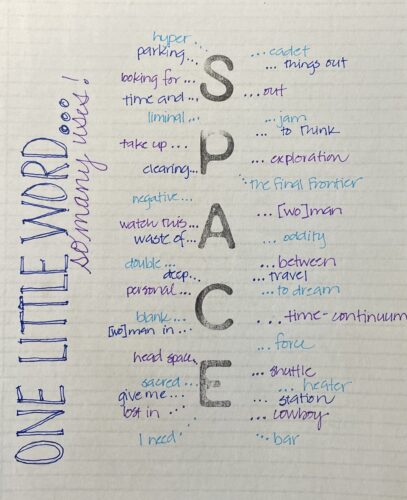 ONE LITTLE WORD...
so many uses!
hyper...
parking...
looking for...
time and...
liminal...
take up...
clearing...
negative...
watch this...
waste of...
double...
deep...
personal...
blank...
[wo]man in...
head space
sacred...
give me...
lost in...
I need...
SPACE
...cadet
...things out
...out
...jam
...to think
...exploration
...the Final Frontier
...[wo]man
...oddity
...between
...travel
...to dream
...time-continuum
...force
...shuttle
...heater
...station
...cowboy
...bar